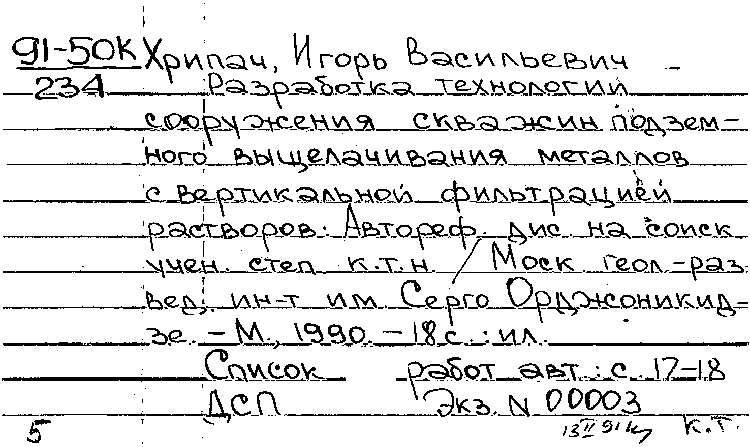 91-50К Хрипач, Игорь Васильевич
234 Разработка технологии
сооружения скважин подзем-
ного выщелачивания металлов
с вертикальной фильтрацией
растворов: Автореф. дис. на соиск.
учен. степ. к.т.н. / Моск. геол.-раз-
вед. ин-т им. Серго Орджоникид-
зе. - М., 1990. - 18 с.: ил.
Список работ авт.: с. 17-18
ДСП Экз. N 00003
5 13 II 91 К.Т.